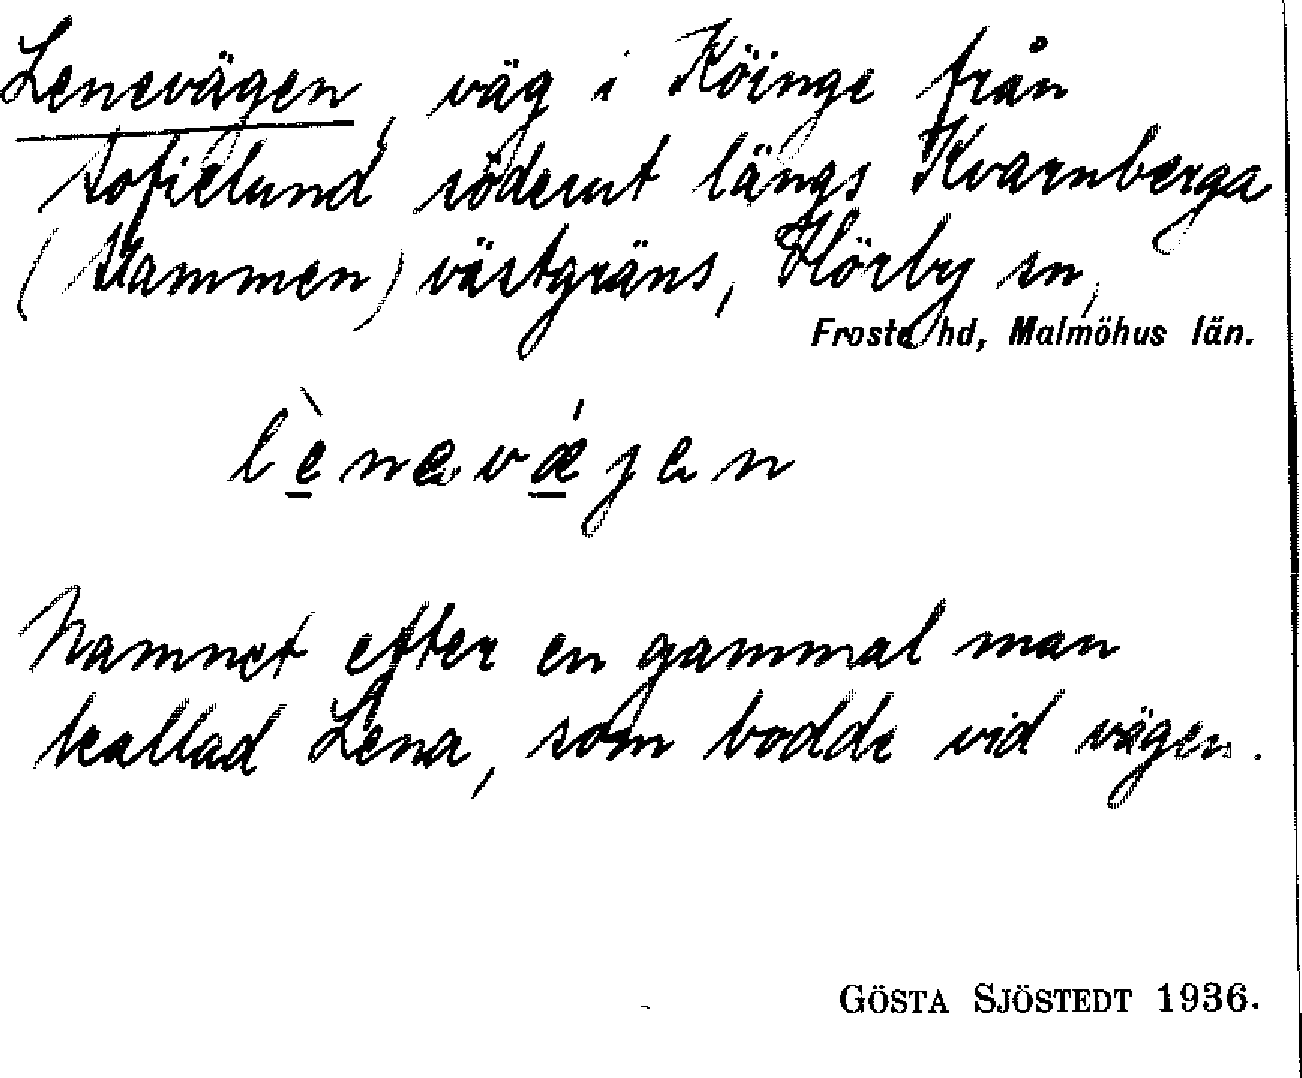 Lenevägen, väg i Köinge från
Sofielund söderut längs Kvarnberga
(Stammen) västgräns, Hörby sn,
Frosta hd, Malmöhus län.
lènevǽjen
Namnet efter en gammal man
kallad Lena, som bodde vid vägen.
GÖSTA SJÖSTEDT 1936.